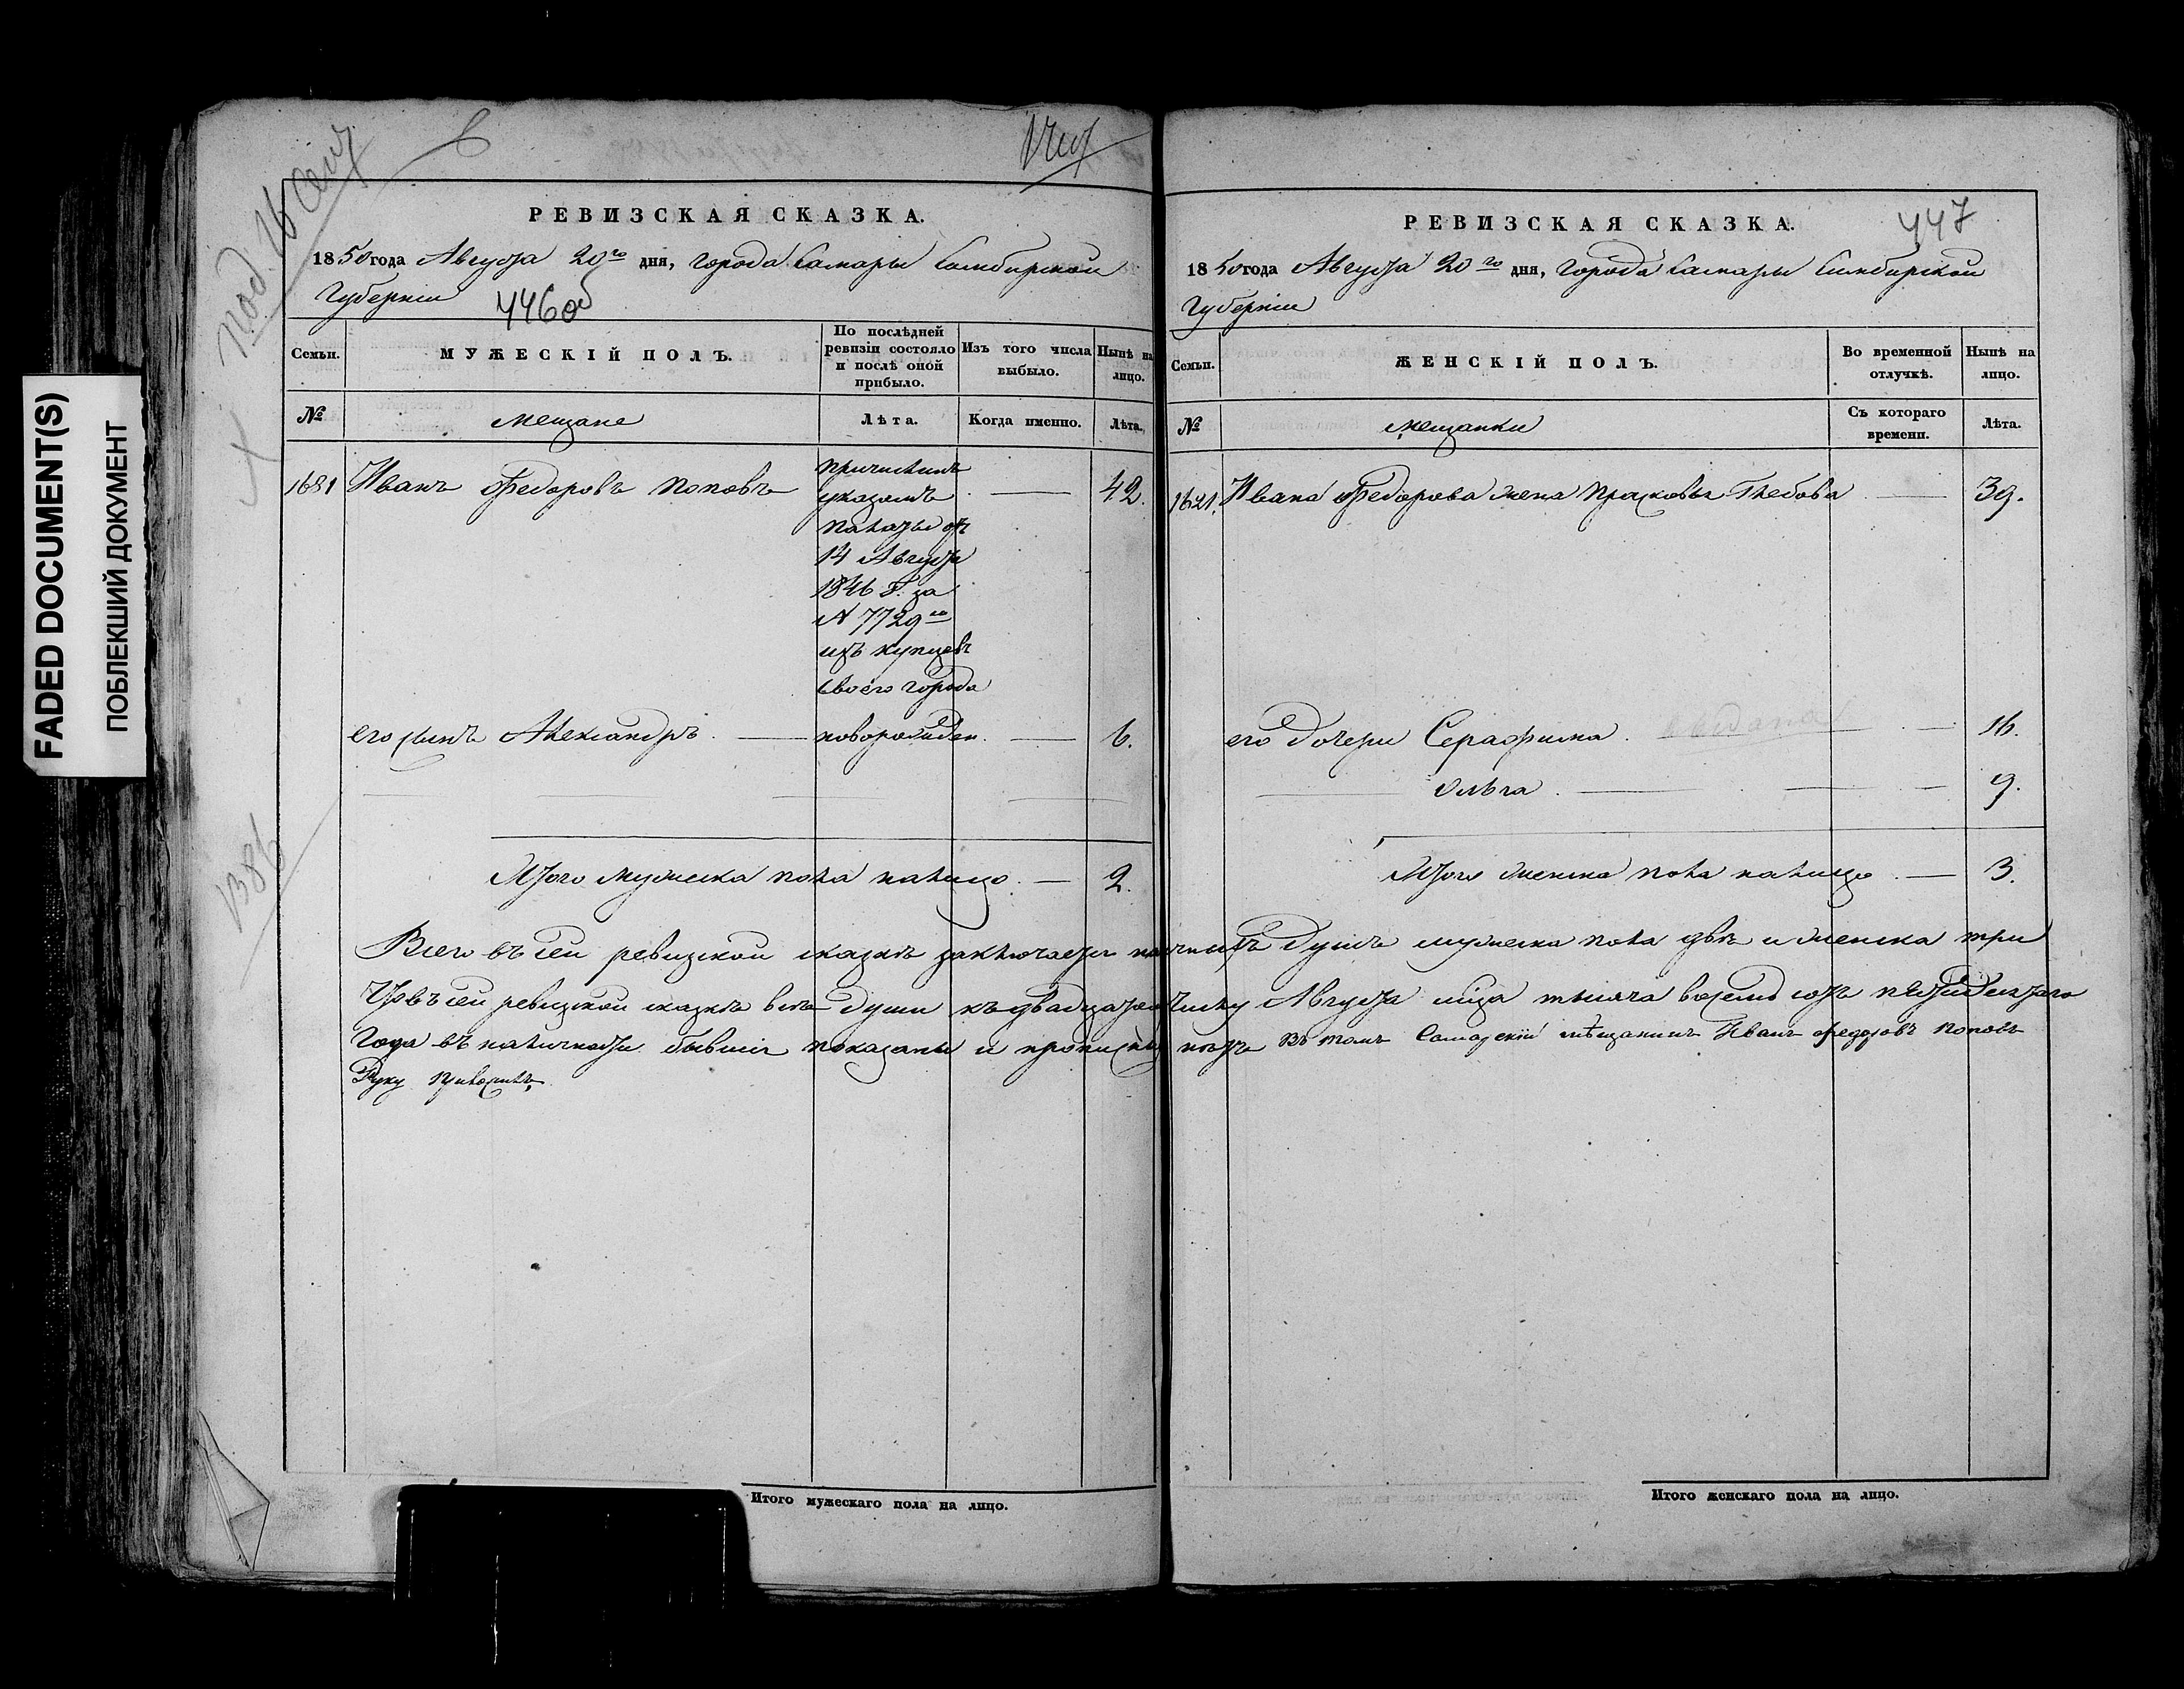 FADED DOCUMENT(S)
ПОБЛЕКШИЙ ДОКУМЕНТ
под. 16
1386
РЕВИЗСКАЯ СКАЗКА.
1850 года Августа 20го дня, города Самары Симбирской
Губернии
446об
Семьи.
МУЖЕСКІЙ ПОЛЪ.
По послѣдней
ревизіи состояло
и послѣ оной
прибыло.
Изъ того числа
выбыло.
Нынѣ на
лицо.
№
Мещане
Лѣта.
Когда именно.
Лѣта.
1681 Иванъ Федоровъ Поповъ
причисленъ
указомъ
Палаты отъ
14 Августа
1846 г. за
№ 7729го
изъ купцовъ
своего города
— 42.
его сынъ Александръ. — новорожден. — 6.
Итого мужеска пола налицо. — 2.
РЕВИЗСКАЯ СКАЗКА.
447
1850 года Августа 20го дня, города Самары Симбирской
Губернии
Семьи.
ЖЕНСКІЙ ПОЛЪ.
Во временной
отлучкѣ.
Нынѣ на
лицо.
№
Мещанки
Съ котораго
времени.
Лѣта.
1681. Ивана Федорова жена Прасковья Глебова — 39.
его дочери Серафима. выдана — 16.
Ольга. — 9.
Итого женска пола налицо. — 3.
Всего въ сей ревизской сказкѣ заключается наличныхъ душъ мужеска пола двѣ и женска три
Что въ сей ревизской сказкѣ все души къ двадцатому числу Августа мца тысяча восемь сотъ пятидесятаго
Года въ наличности бывшие показаны и прописныхъ нѣтъ Въ томъ Самарскій мѣщанинъ Иванъ Федоровъ Поповъ
Руку приложилъ
Итого мужескаго пола на лицо.
Итого женскаго пола на лицо.